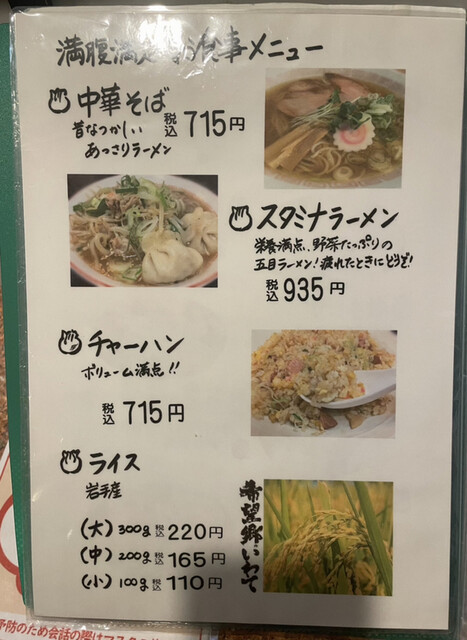 満腹満足お食事メニュー
中華そば
税込 715円
昔なつかしい
あっさりラーメン
スタミナラーメン
栄養満点、野菜たっぷりの
五目ラーメン!疲れたときにどうぞ!
税込 935円
チャーハン
ボリューム満点!!
税込 715円
ライス
岩手産
(大) 300g 税込 220円
(中) 200g 税込 165円
(小) 100g 税込 110円
希望郷いわて
予防のため会話の際はマスクの